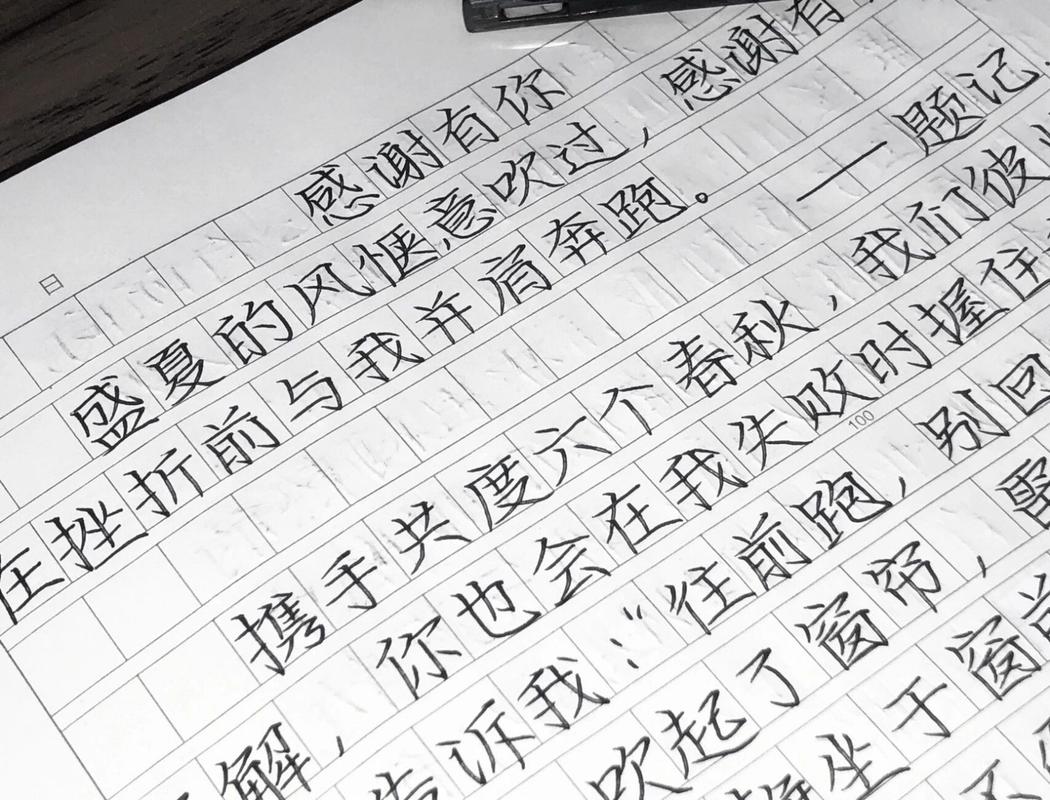 感谢有你
盛夏的风惬意吹过，感谢有
在挫折前与我并肩奔跑。
——题记
携手共度六个春秋，我们彼
100
解，你也会在我失败时握住
告诉我：“往前跑，别回
吹起了窗帘，
坐于窗前
不